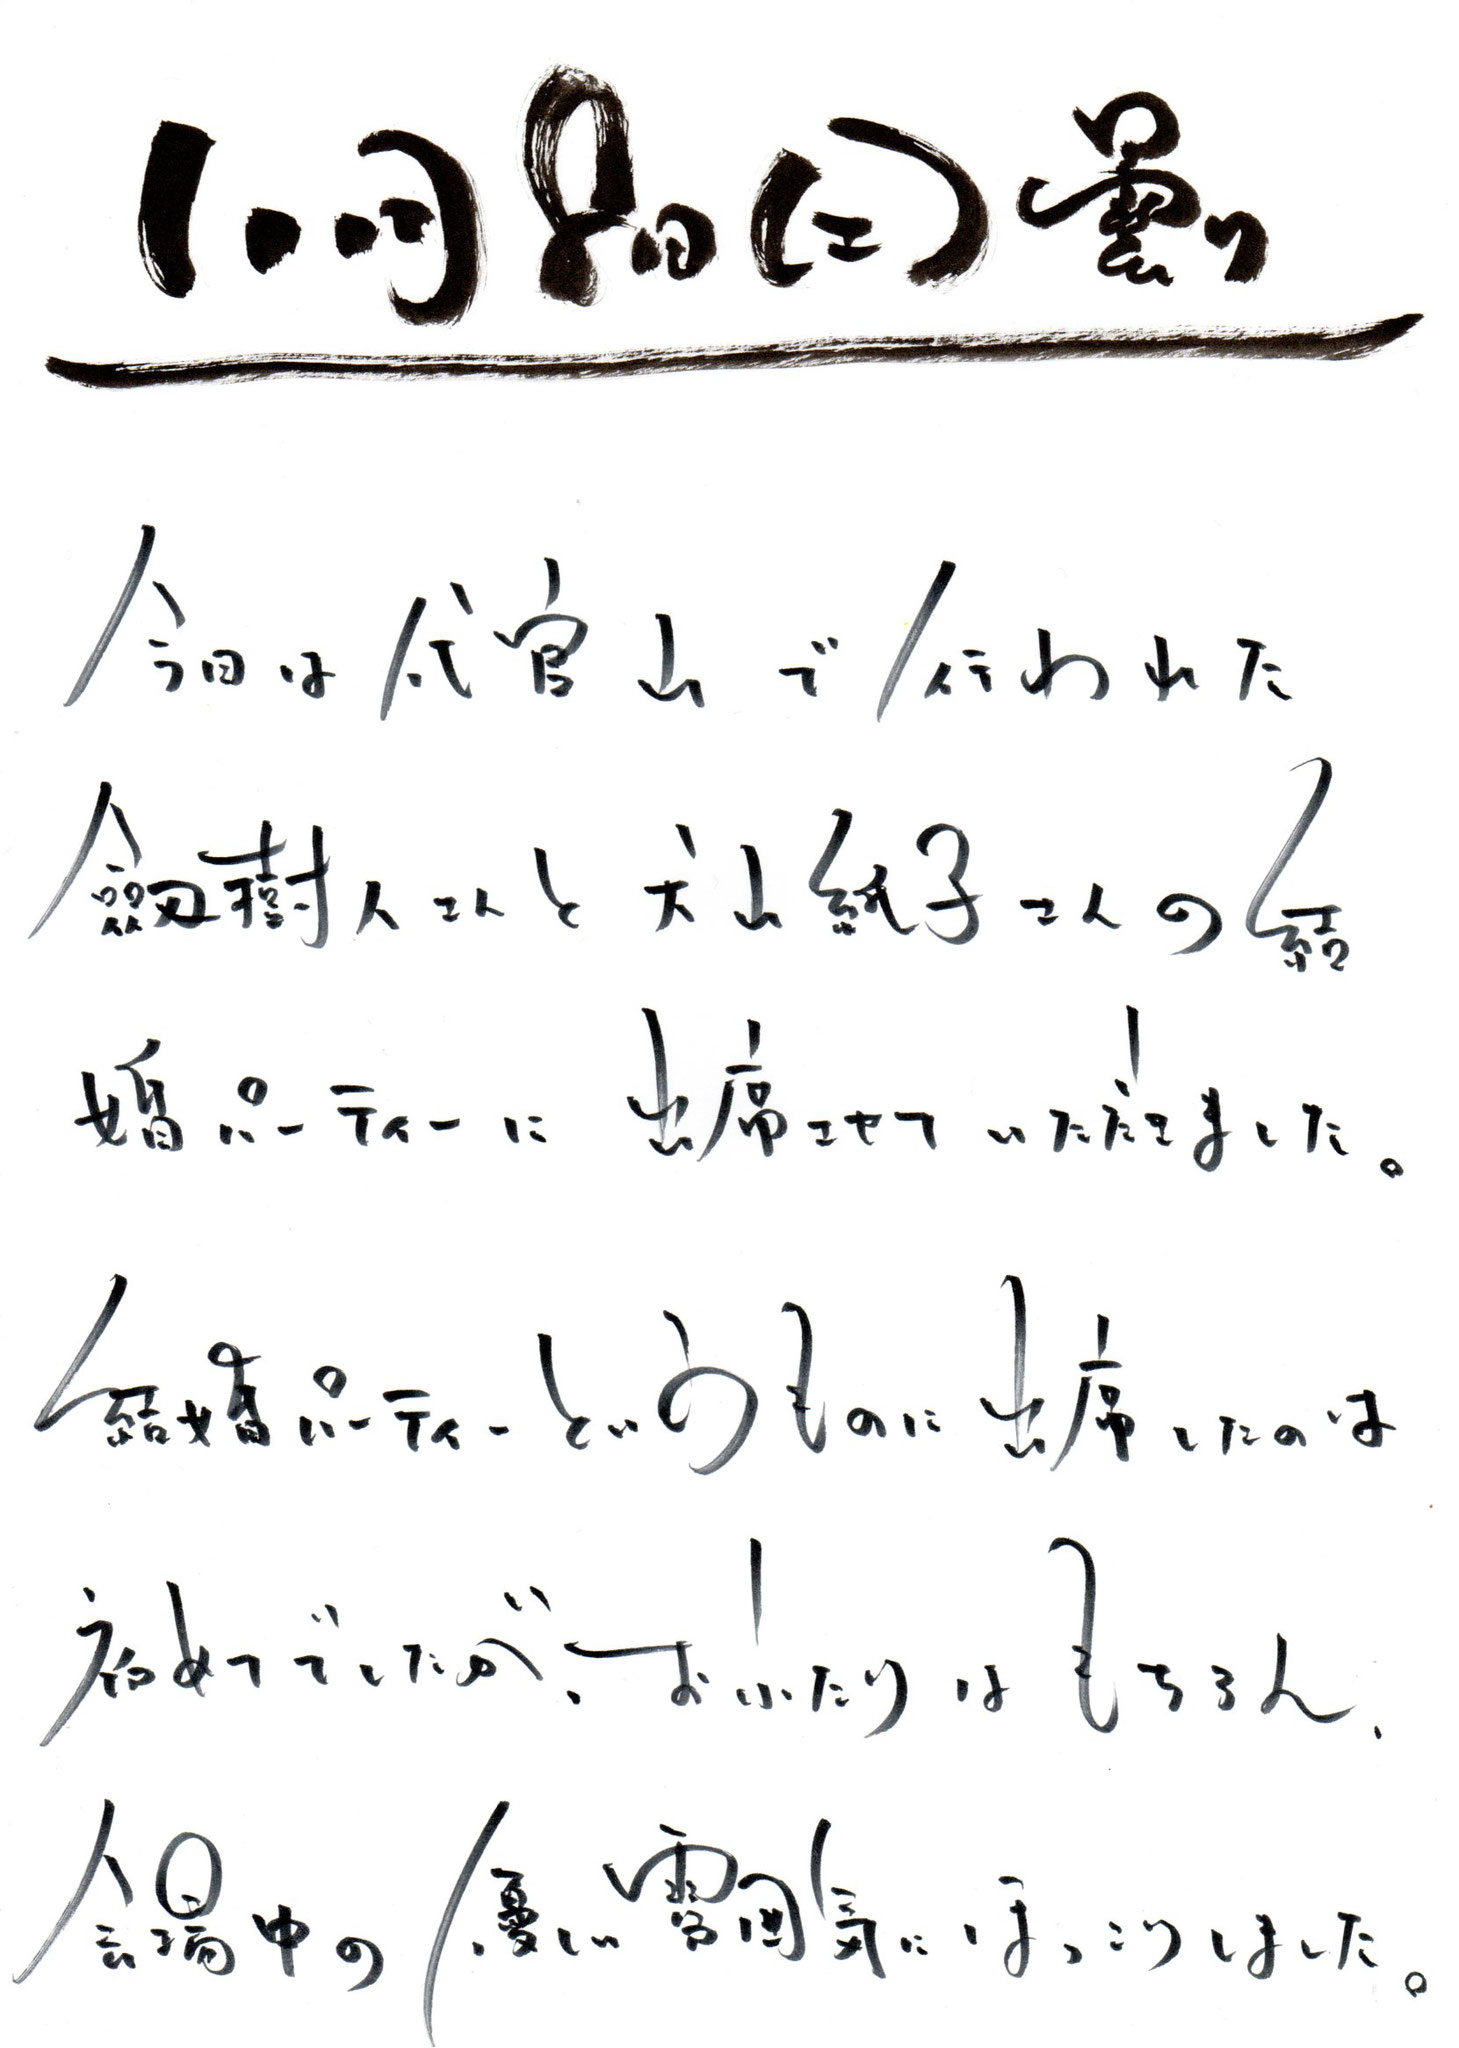 11月8日(土)曇り
今日は代官山で行われた
劔樹人さんと犬山紙子さんの結
婚パーティーに出席させていただきました。
結婚パーティーというものに出席したのは
初めてでしたが、おふたりはもちろん、
会場中の優しい雰囲気にほっこりしました。